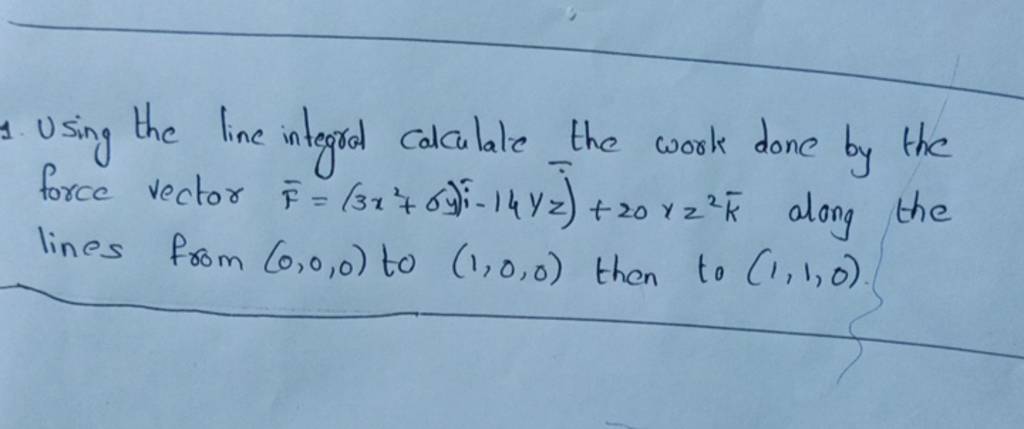 1. Using the line integral calculate the work done by the
force vector F̄ = (3x²+6y)ī - 14yz j̄ + 20xz² k̄ along the
lines from (0,0,0) to (1,0,0) then to (1,1,0).